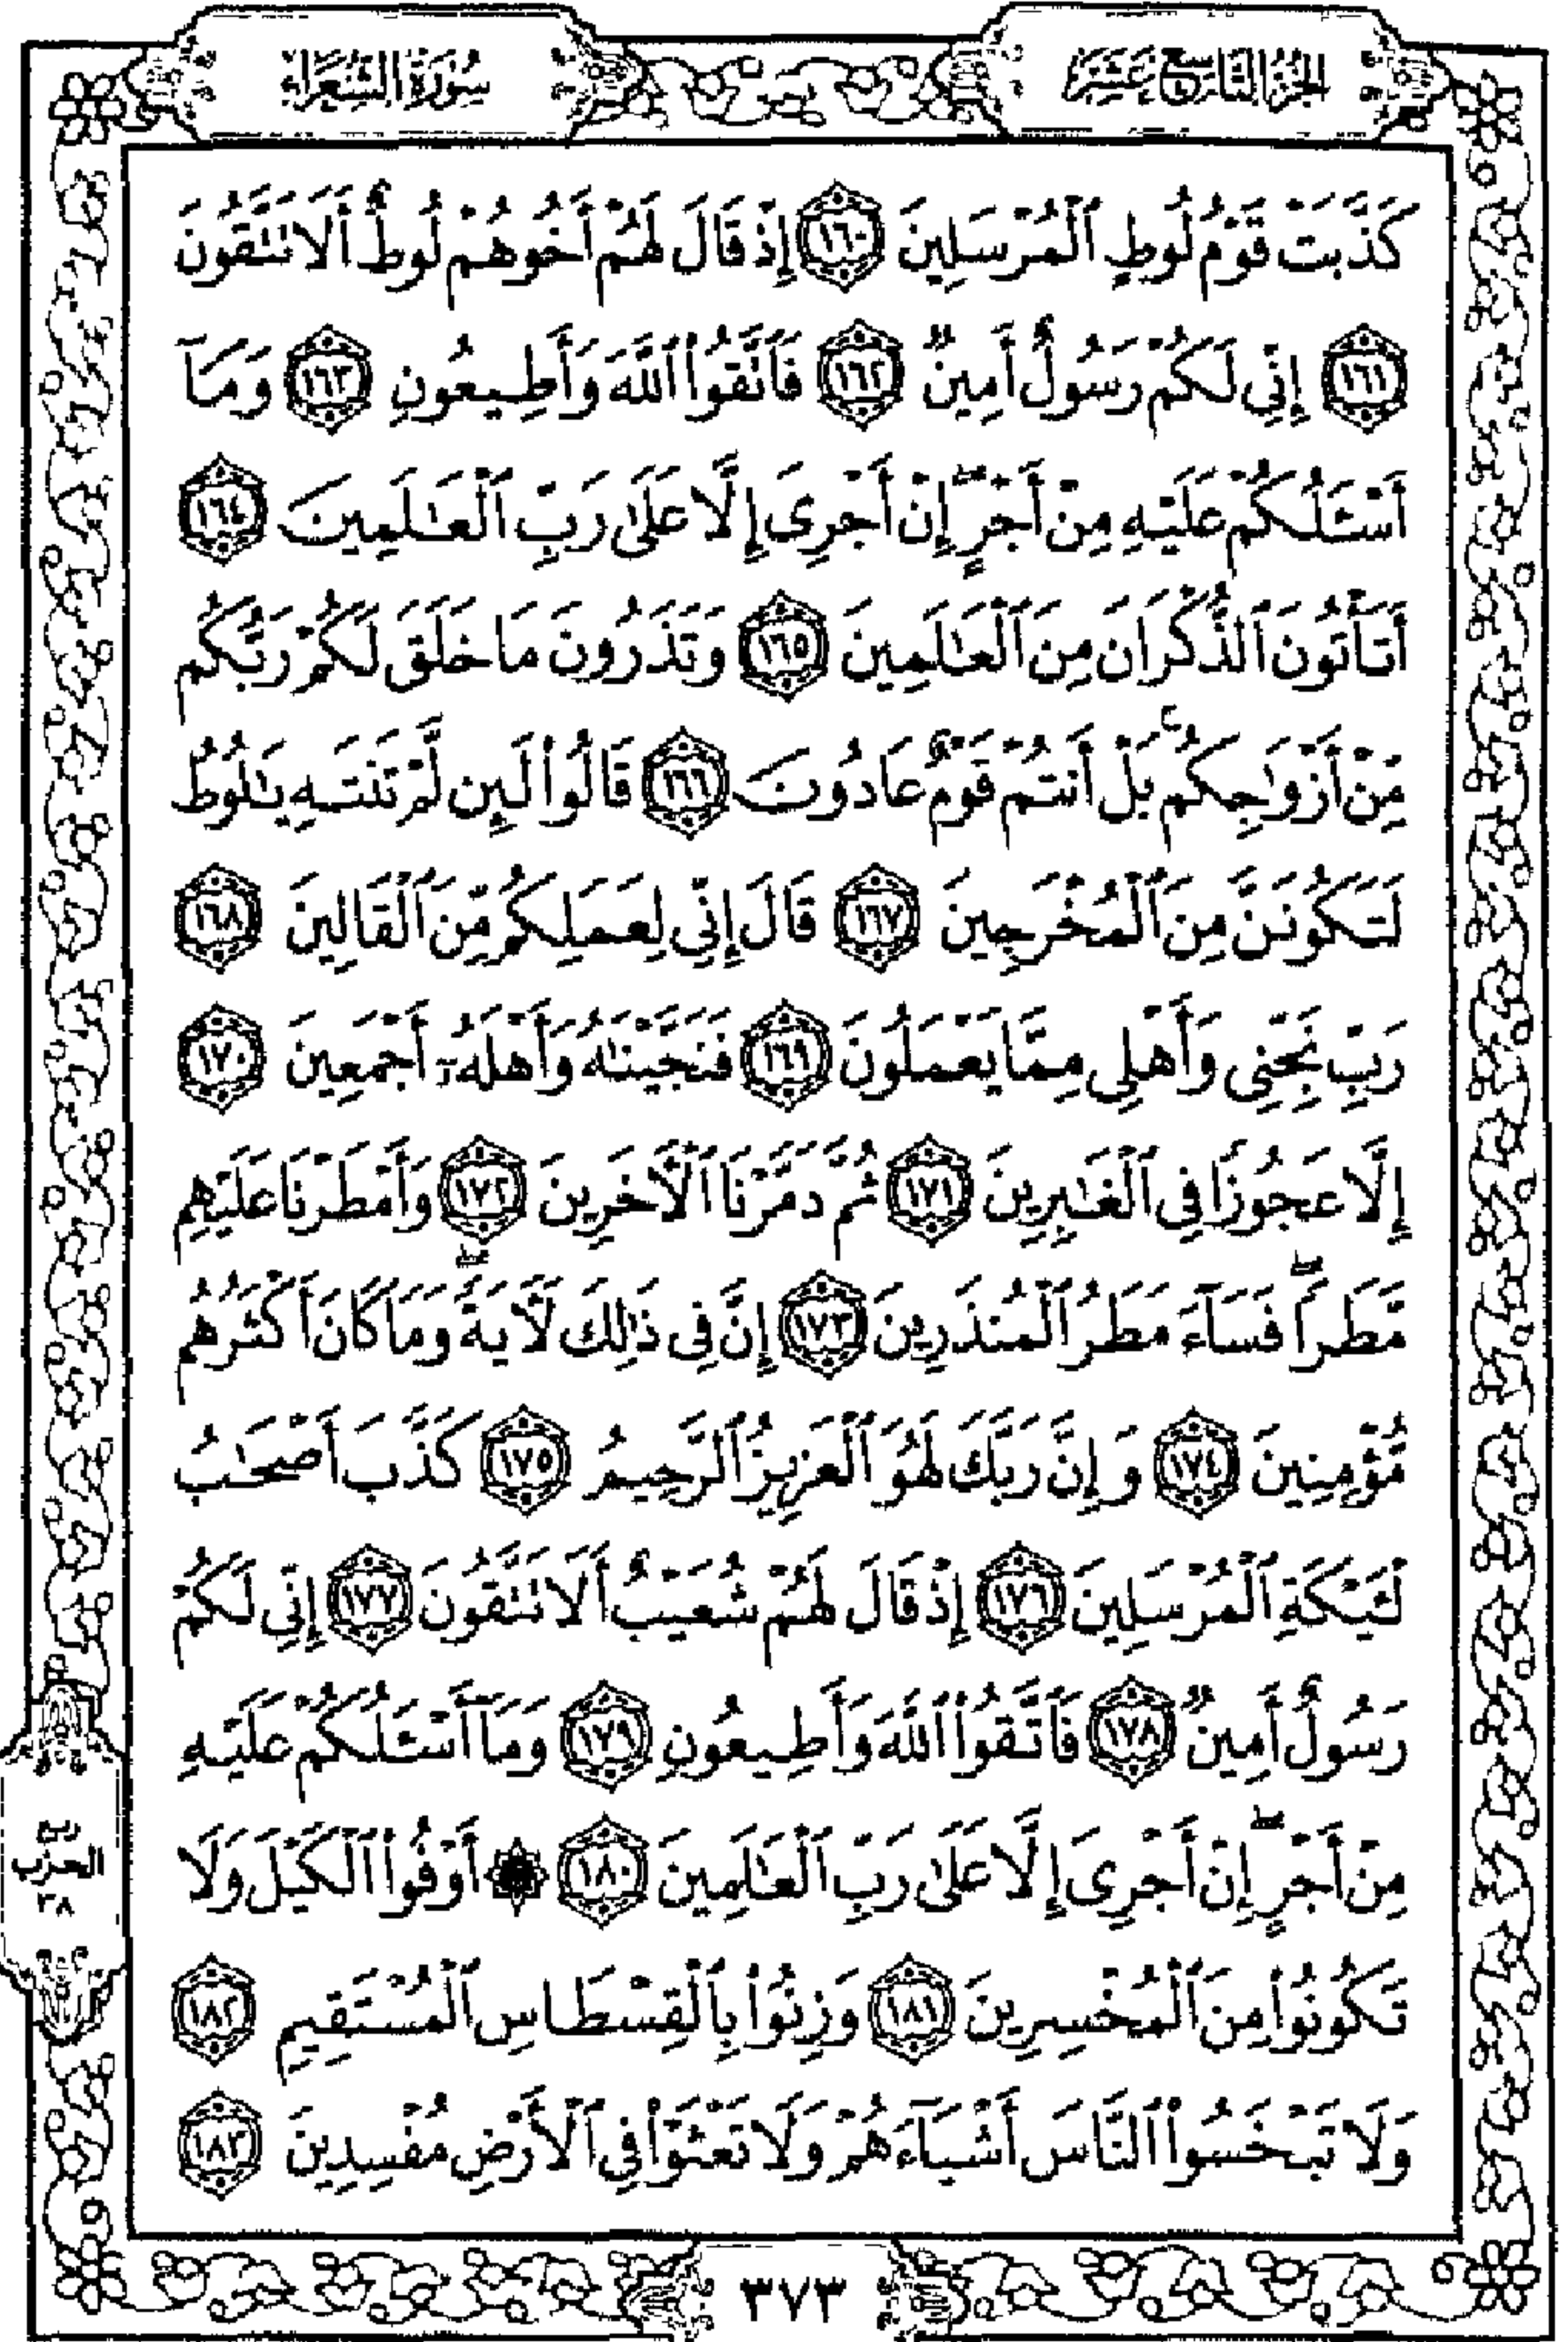 الجزء التاسع عشر
سورة الشعراء
كَذَّبَتْ قَوْمُ لُوطٍ ٱلْمُرْسَلِينَ ١٦٠ إِذْ قَالَ لَهُمْ أَخُوهُمْ لُوطٌ أَلَا تَتَّقُونَ
١٦١ إِنِّي لَكُمْ رَسُولٌ أَمِينٌ ١٦٢ فَٱتَّقُوا۟ ٱللَّهَ وَأَطِيعُونِ ١٦٣ وَمَآ
أَسْـَٔلُكُمْ عَلَيْهِ مِنْ أَجْرٍ ۖ إِنْ أَجْرِىَ إِلَّا عَلَىٰ رَبِّ ٱلْعَـٰلَمِينَ ١٦٤
أَتَأْتُونَ ٱلذُّكْرَانَ مِنَ ٱلْعَـٰلَمِينَ ١٦٥ وَتَذَرُونَ مَا خَلَقَ لَكُمْ رَبُّكُم
مِّنْ أَزْوَٰجِكُم ۚ بَلْ أَنتُمْ قَوْمٌ عَادُونَ ١٦٦ قَالُوا۟ لَئِن لَّمْ تَنتَهِ يَـٰلُوطُ
لَتَكُونَنَّ مِنَ ٱلْمُخْرَجِينَ ١٦٧ قَالَ إِنِّي لِعَمَلِكُم مِّنَ ٱلْقَالِينَ ١٦٨
رَبِّ نَجِّنِى وَأَهْلِى مِمَّا يَعْمَلُونَ ١٦٩ فَنَجَّيْنَـٰهُ وَأَهْلَهُۥٓ أَجْمَعِينَ ١٧٠
إِلَّا عَجُوزًا فِى ٱلْغَـٰبِرِينَ ١٧١ ثُمَّ دَمَّرْنَا ٱلْـَٔاخَرِينَ ١٧٢ وَأَمْطَرْنَا عَلَيْهِم
مَّطَرًا ۖ فَسَآءَ مَطَرُ ٱلْمُنذَرِينَ ١٧٣ إِنَّ فِى ذَٰلِكَ لَـَٔايَةً ۖ وَمَا كَانَ أَكْثَرُهُم
مُّؤْمِنِينَ ١٧٤ وَإِنَّ رَبَّكَ لَهُوَ ٱلْعَزِيزُ ٱلرَّحِيمُ ١٧٥ كَذَّبَ أَصْحَـٰبُ
لْـَٔيْكَةِ ٱلْمُرْسَلِينَ ١٧٦ إِذْ قَالَ لَهُمْ شُعَيْبٌ أَلَا تَتَّقُونَ ١٧٧ إِنِّي لَكُمْ
رَسُولٌ أَمِينٌ ١٧٨ فَٱتَّقُوا۟ ٱللَّهَ وَأَطِيعُونِ ١٧٩ وَمَآ أَسْـَٔلُكُمْ عَلَيْهِ
مِنْ أَجْرٍ ۖ إِنْ أَجْرِىَ إِلَّا عَلَىٰ رَبِّ ٱلْعَـٰلَمِينَ ١٨٠ ۞ أَوْفُوا۟ ٱلْكَيْلَ وَلَا
تَكُونُوا۟ مِنَ ٱلْمُخْسِرِينَ ١٨١ وَزِنُوا۟ بِٱلْقِسْطَاسِ ٱلْمُسْتَقِيمِ ١٨٢
وَلَا تَبْخَسُوا۟ ٱلنَّاسَ أَشْيَآءَهُمْ وَلَا تَعْثَوْا۟ فِى ٱلْأَرْضِ مُفْسِدِينَ ١٨٣
ربع
الحزب
٣٨
٣٧٣